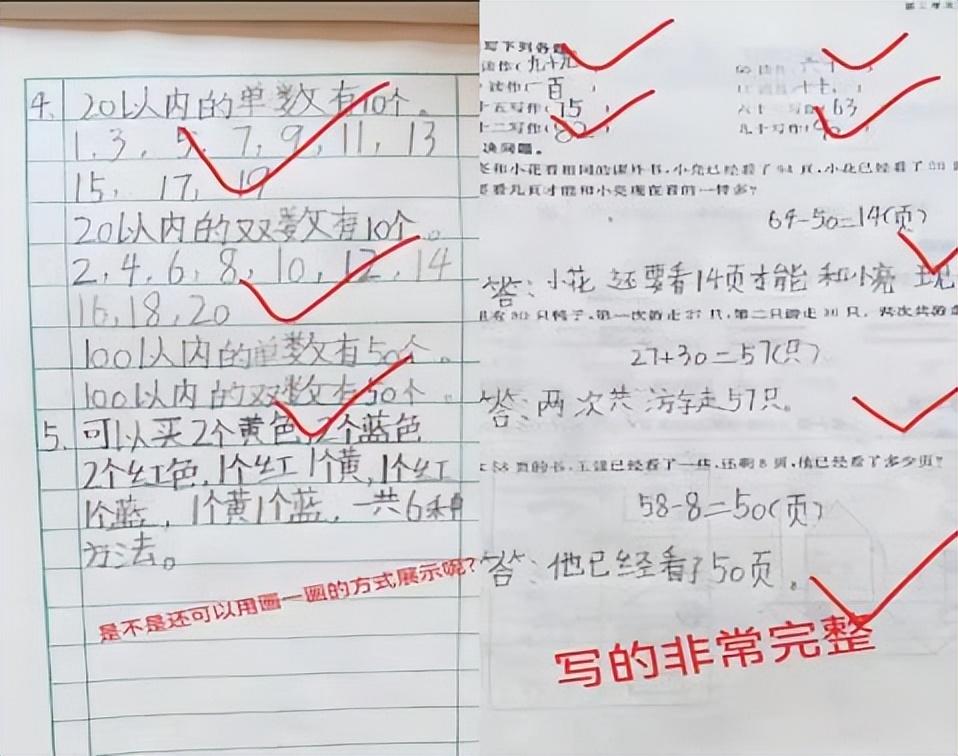 4. 20以内的单数有10个。
1. 3. 5. 7, 9, 11, 13
15, 17, 19
20以内的双数有10个。
2, 4, 6, 8, 10, 12, 14
16, 18, 20
100以内的单数有50个。
100以内的双数有50个。
5. 可以买2个黄色, 2个蓝色
2个红色, 1个红1个黄, 1个红
1个蓝, 1个黄1个蓝, 一共6种
方法。
是不是还可以用画一画的方式展示呢?
写下列各题。
读作(九十九)
读作(一百)
十五写作(75)
十二写作(82)
六十
六十三写作(63)
九十写作
决问题。
和小花看相同的课外书,小亮已经看了64页,小花已经看了50
看几页才能和小亮现在看的一样多?
64-50=14(页)
答: 小花还要看14页才能和小亮现
有80只鸭子,第一次游走27只,第二只游走30只,两次共游走
27+30=57(只)
答: 两次共游走57只。
58页的书,王建已经看了一些,还剩8页,他已经看了多少页?
58-8=50(页)
答: 他已经看了50页。
写的非常完整